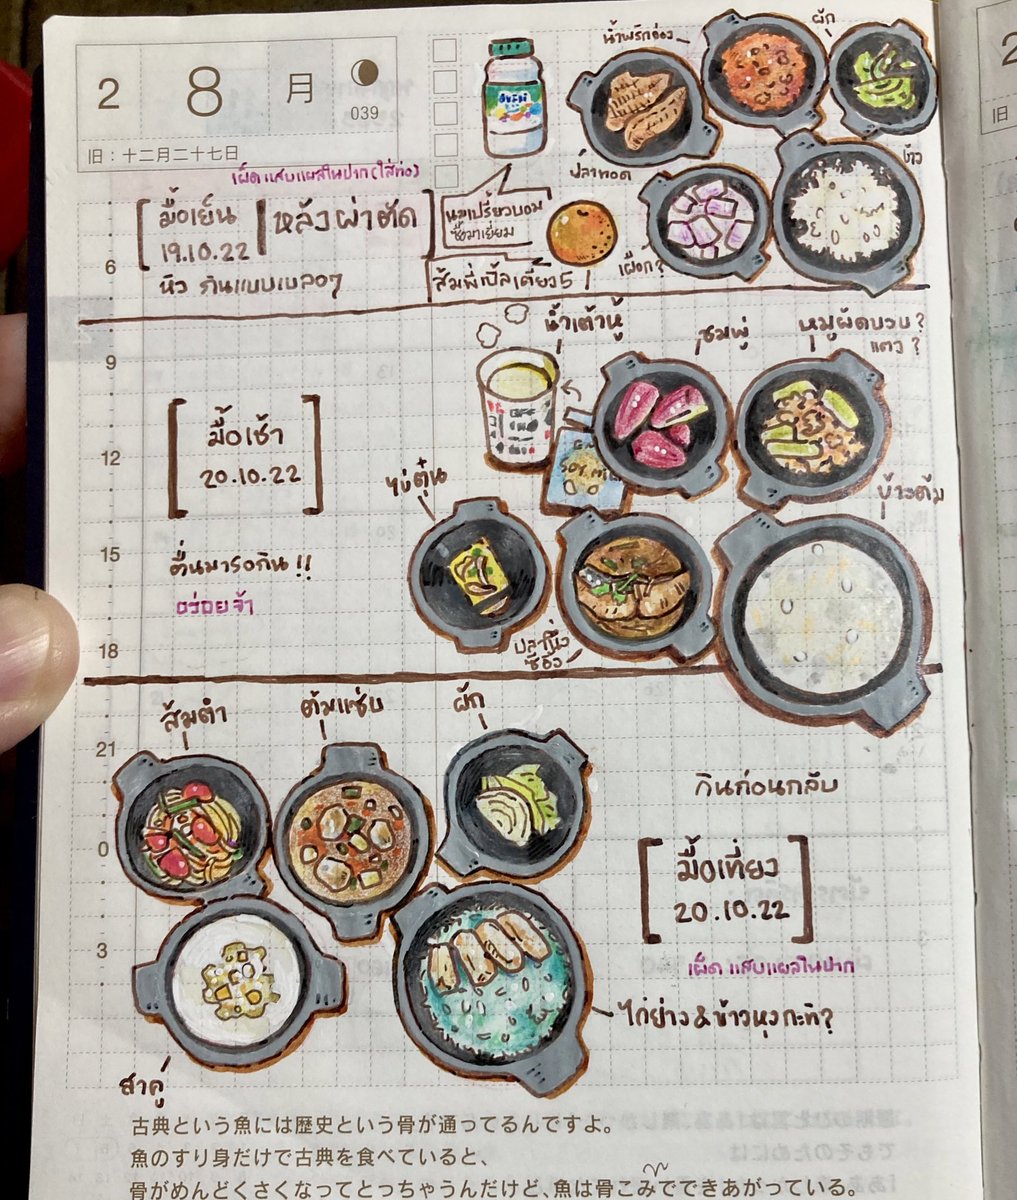 2 8 月
039
旧：十二月二十七日
เผ็ด แสบแผลในปาก (ใส่ท่อ)
[มื้อเย็น
19.10.22
หลังผ่าตัด]
หิว กินแบบเบลอๆ
นมเปรี้ยวบอม
ซื้อมาเยี่ยม
ส้มพี่เปิ้ลเตียง 5
น้ำพริกอ่อง
ผัก
ปลาทอด
ข้าว
เผือก?
6
9
12
15
18
21
0
3
[มื้อเช้า
20.10.22]
ตื่นมารอกิน!!
อร่อยจ้า
น้ำเต้าหู้
ชมพู่
หมูผัดบวบ?
แตง?
SOY MILK
ไข่ตุ๋น
ปลานึ่ง
ซีอิ๊ว
ข้าวต้ม
ส้มตำ
ต้มแซ่บ
ผัก
กินก่อนกลับ
[มื้อเที่ยง
20.10.22]
เผ็ด แสบแผลในปาก
ไก่ย่าง & ข้าวหุงกะทิ?
สาคู
古典という魚には歴史という骨が通ってるんですよ。
魚のすり身だけで古典を食べていると、
骨がめんどくさくなってとっちゃうんだけど、魚は骨こみでできあがっている。